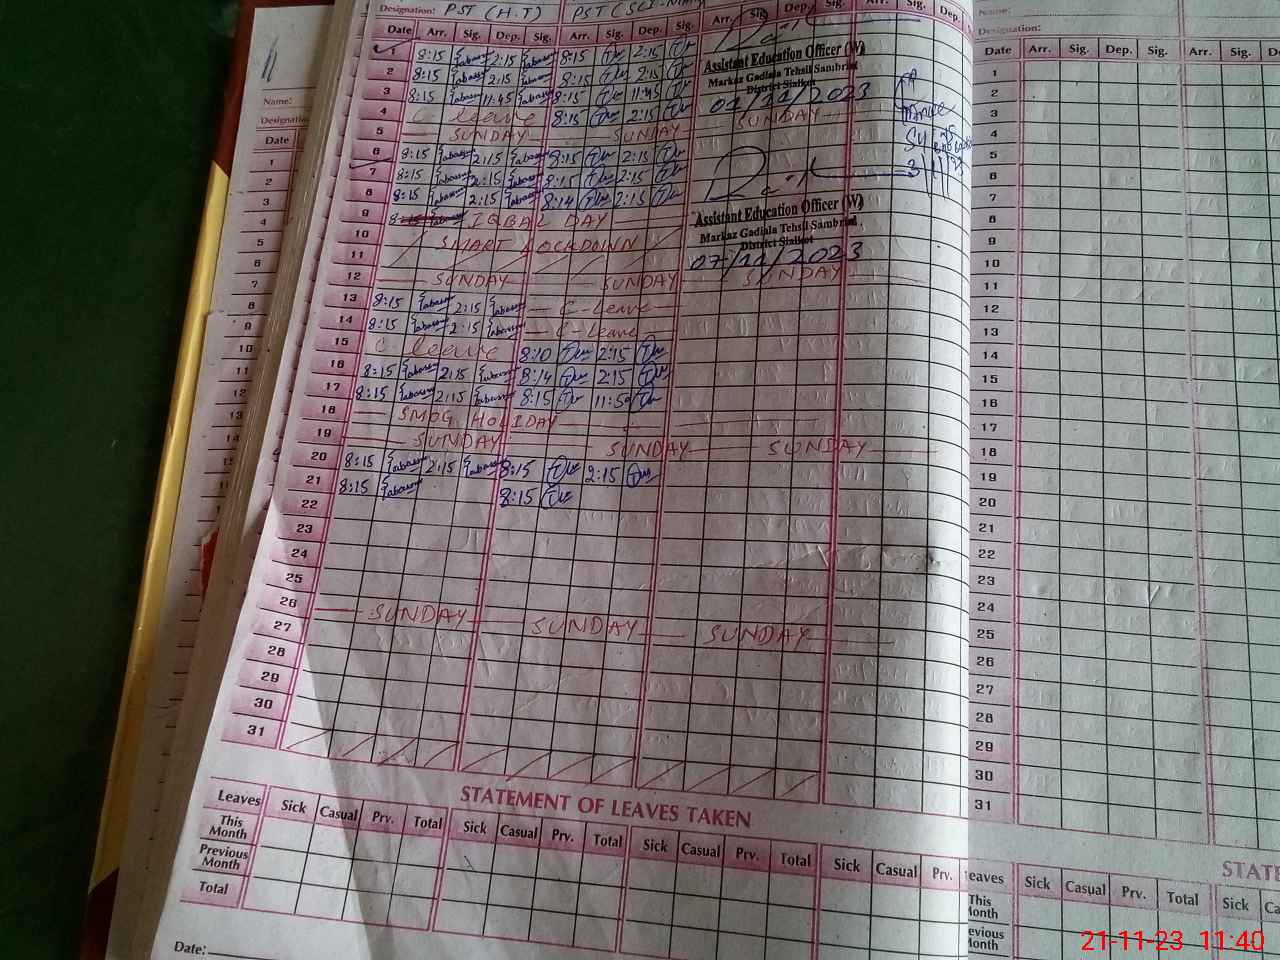 Designation: PST (H.T) PST (SCI-
Date Arr. Sig. Dep. Sig. Arr. Sig. Dep. Sig. Arr. Sig. Arr. Sig. Dep.
1 8:15 Tabasum 2:15 Tabasum 8:15 2:15
2 8:15 Tabasum 2:15 Tabasum 8:15 2:15
3 8:15 Tabasum 11:45 Tabasum 8:15 11:45
4 C leave 8:15 2:15
5 SUNDAY SUNDAY SUNDAY
6 8:15 Tabasum 2:15 Tabasum 8:15 2:15
7 8:15 Tabasum 2:15 Tabasum 8:15 2:15
8 8:15 Tabasum 2:15 Tabasum 8:14 2:15
9 IQBAL DAY
10 SMART LOCKDOWN
11
12 SUNDAY SUNDAY SUNDAY
13 8:15 Tabasum 2:15 Tabasum C-Leave
14 8:15 Tabasum 2:15 Tabasum C-Leave
15 C leave 8:10 2:15
16 8:15 Tabasum 2:15 Tabasum 8:14 2:15
17 8:15 Tabasum 2:15 Tabasum 8:15 11:50
18 SMOG HOLIDAY
19 SUNDAY SUNDAY SUNDAY
20 8:15 Tabasum 2:15 Tabasum 8:15 2:15
21 8:15 Tabasum 8:15
22
23
24
25
26 SUNDAY SUNDAY SUNDAY
27
28
29
30
31
Assistant Education Officer (W)
Markaz Gadiala Tehsil Sambrial
District Sialkot
01/11/2023
Assistant Education Officer (W)
Markaz Gadiala Tehsil Sambrial
District Sialkot
07/11/2023
STATEMENT OF LEAVES TAKEN
Leaves Sick Casual Prv. Total Sick Casual Prv. Total Sick Casual Prv. Total Sick Casual Prv.
This Month
Previous Month
Total
Date:
Name:
Designation:
Date
1
2
3
4
5
6
7
8
9
10
11
12
13
14
15
16
17
18
19
20
Name:
Designation:
Date Arr. Sig. Dep. Sig. Arr. Sig.
1
2
3
4
5
6
7
8
9
10
11
12
13
14
15
16
17
18
19
20
21
22
23
24
25
26
27
28
29
30
31
STATE
Leaves Sick Casual Prv. Total Sick
This Month
21-11-23 11:40